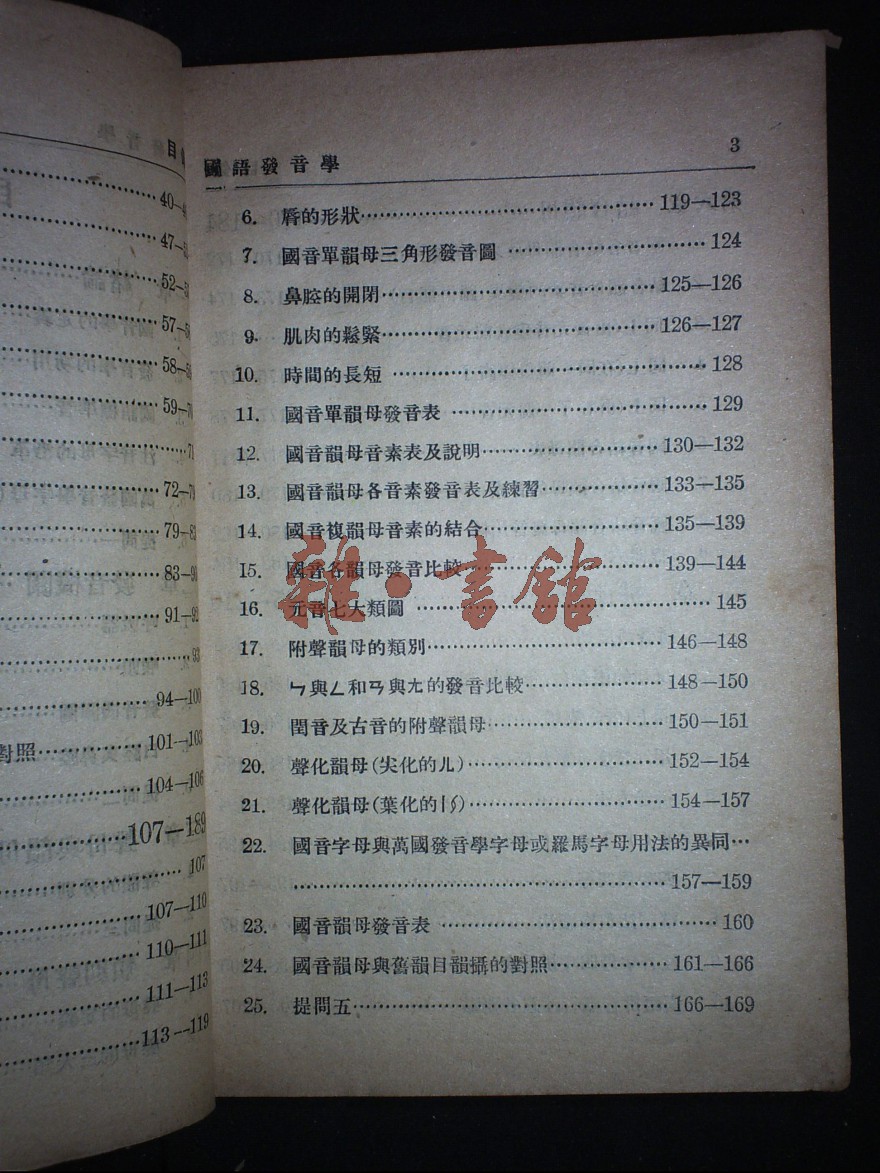 目
40—4
47—5
52—5
57—5
58—5
59—7
71
72—7
79—8
83—9
91—92
93
94—100
對照……101—103
104—106
107—189
107
107—110
110—111
111—113
113—119
國語發音學 3
6. 脣的形狀……119—123
7. 國音單韻母三角形發音圖……124
8. 鼻腔的開閉……125—126
9. 肌肉的鬆緊……126—127
10. 時間的長短……128
11. 國音單韻母發音表……129
12. 國音韻母音素表及說明……130—132
13. 國音韻母各音素發音表及練習……133—135
14. 國音複韻母音素的結合……135—139
15. 國音各韻母發音比較……139—144
16. 元音七大類圖……145
17. 附聲韻母的類別……146—148
18. ㄣ與ㄥ和ㄢ與ㄤ的發音比較……148—150
19. 閏音及古音的附聲韻母……150—151
20. 聲化韻母(尖化的ㄦ)……152—154
21. 聲化韻母(葉化的)……154—157
22. 國音字母與萬國發音學字母或羅馬字母用法的異同…
……157—159
23. 國音韻母發音表……160
24. 國音韻母與舊韻目韻攝的對照……161—166
25. 提問五……166—169
雜·書館